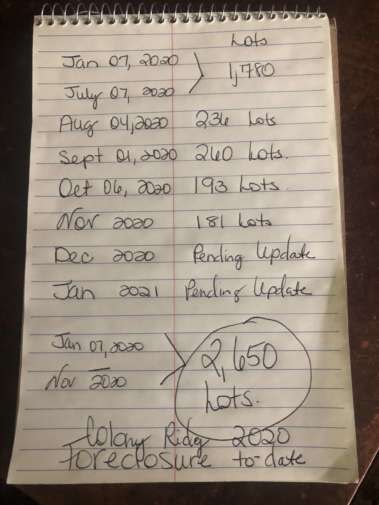 Lots
Jan 07, 2020
1,780
July 07, 2020
Aug 04, 2020 236 Lots
Sept 01, 2020 260 Lots.
Oct 06, 2020 193 Lots.
Nov 2020 181 Lots
Dec 2020 Pending Update
Jan 2021 Pending Update
Jan 07, 2020
2,650
Nov 2020
Lots.
Colony Ridge 2020
Foreclosure to-date